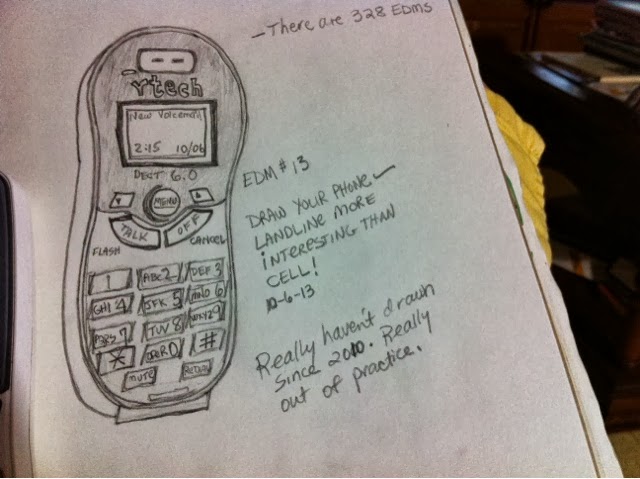 - There are 328 EDMs
vtech
New Voicemail
2:15 10/06
DECT 6.0
MENU
TALK OFF
FLASH CANCEL
1 ABC2 DEF3
GHI4 JFK5 MNO6
PQRS7 TUV8 WXYZ9
* OPER0 #
MUTE REDIAL
EDM #13
DRAW YOUR PHONE
LANDLINE MORE
INTERESTING THAN
CELL!
10-6-13
Really haven't drawn
since 2010. Really
out of practice.